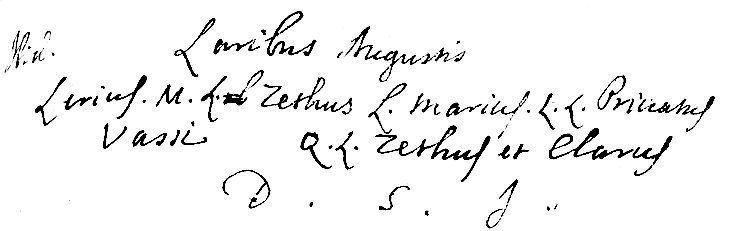 Ibid. Laribus Augustis
Livius. M. L. Zethus L. Marius. L. L. Privatus
Vassi Q. L. Zethus et Clarus
D. S. J.